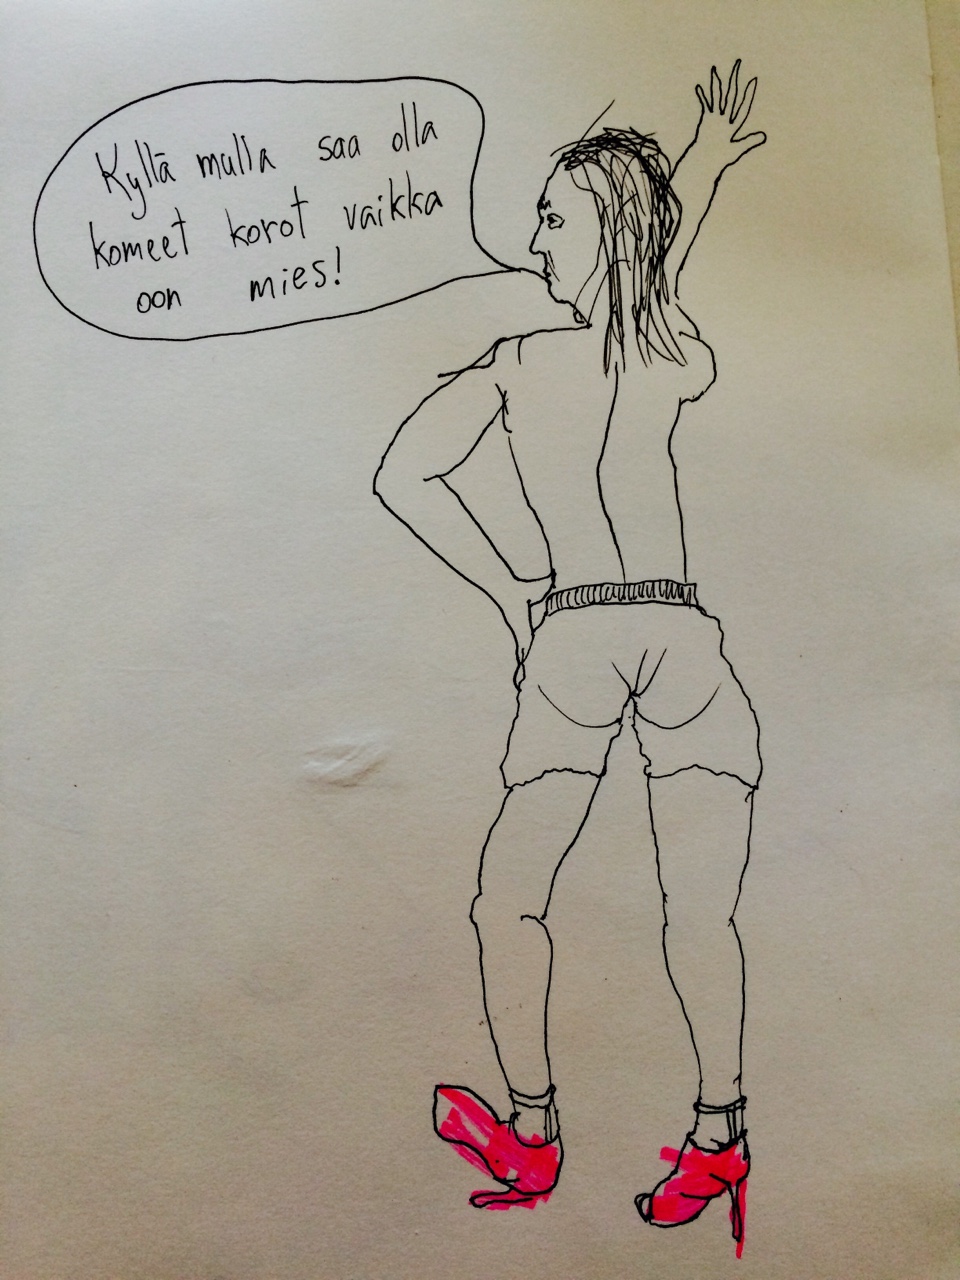 Kyllä mulla saa olla
komeet korot vaikka
oon mies!